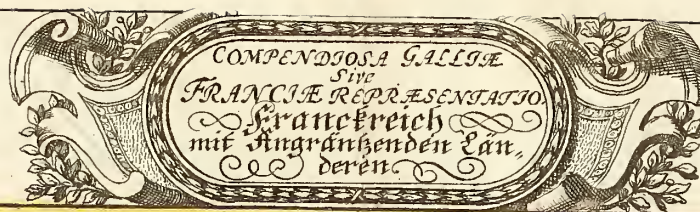 COMPENDIOSA GALLIÆ
Sive
FRANCIÆ REPRÆSENTATIO.
Franckreich
mit Angräntzenden Län⸗
deren.